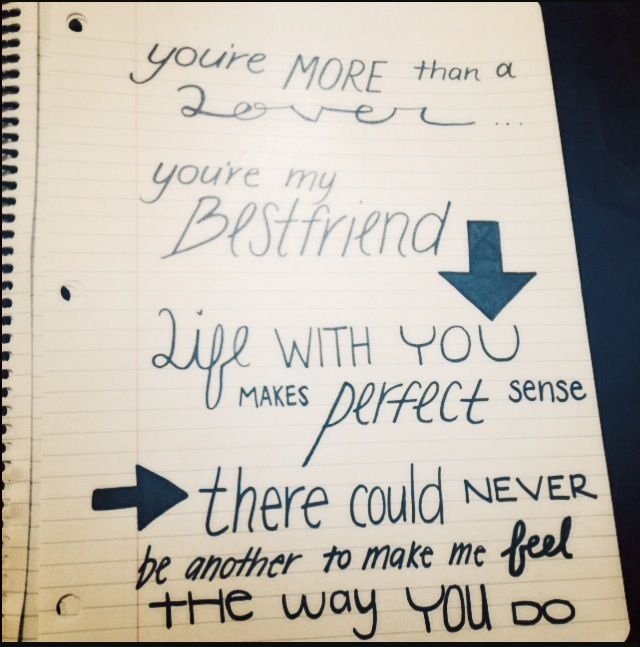 you're MORE than a
Lover...
you're my
Bestfriend
Life WITH YOU
MAKES perfect sense
there could NEVER
be another to make me feel
THE way YOU DO